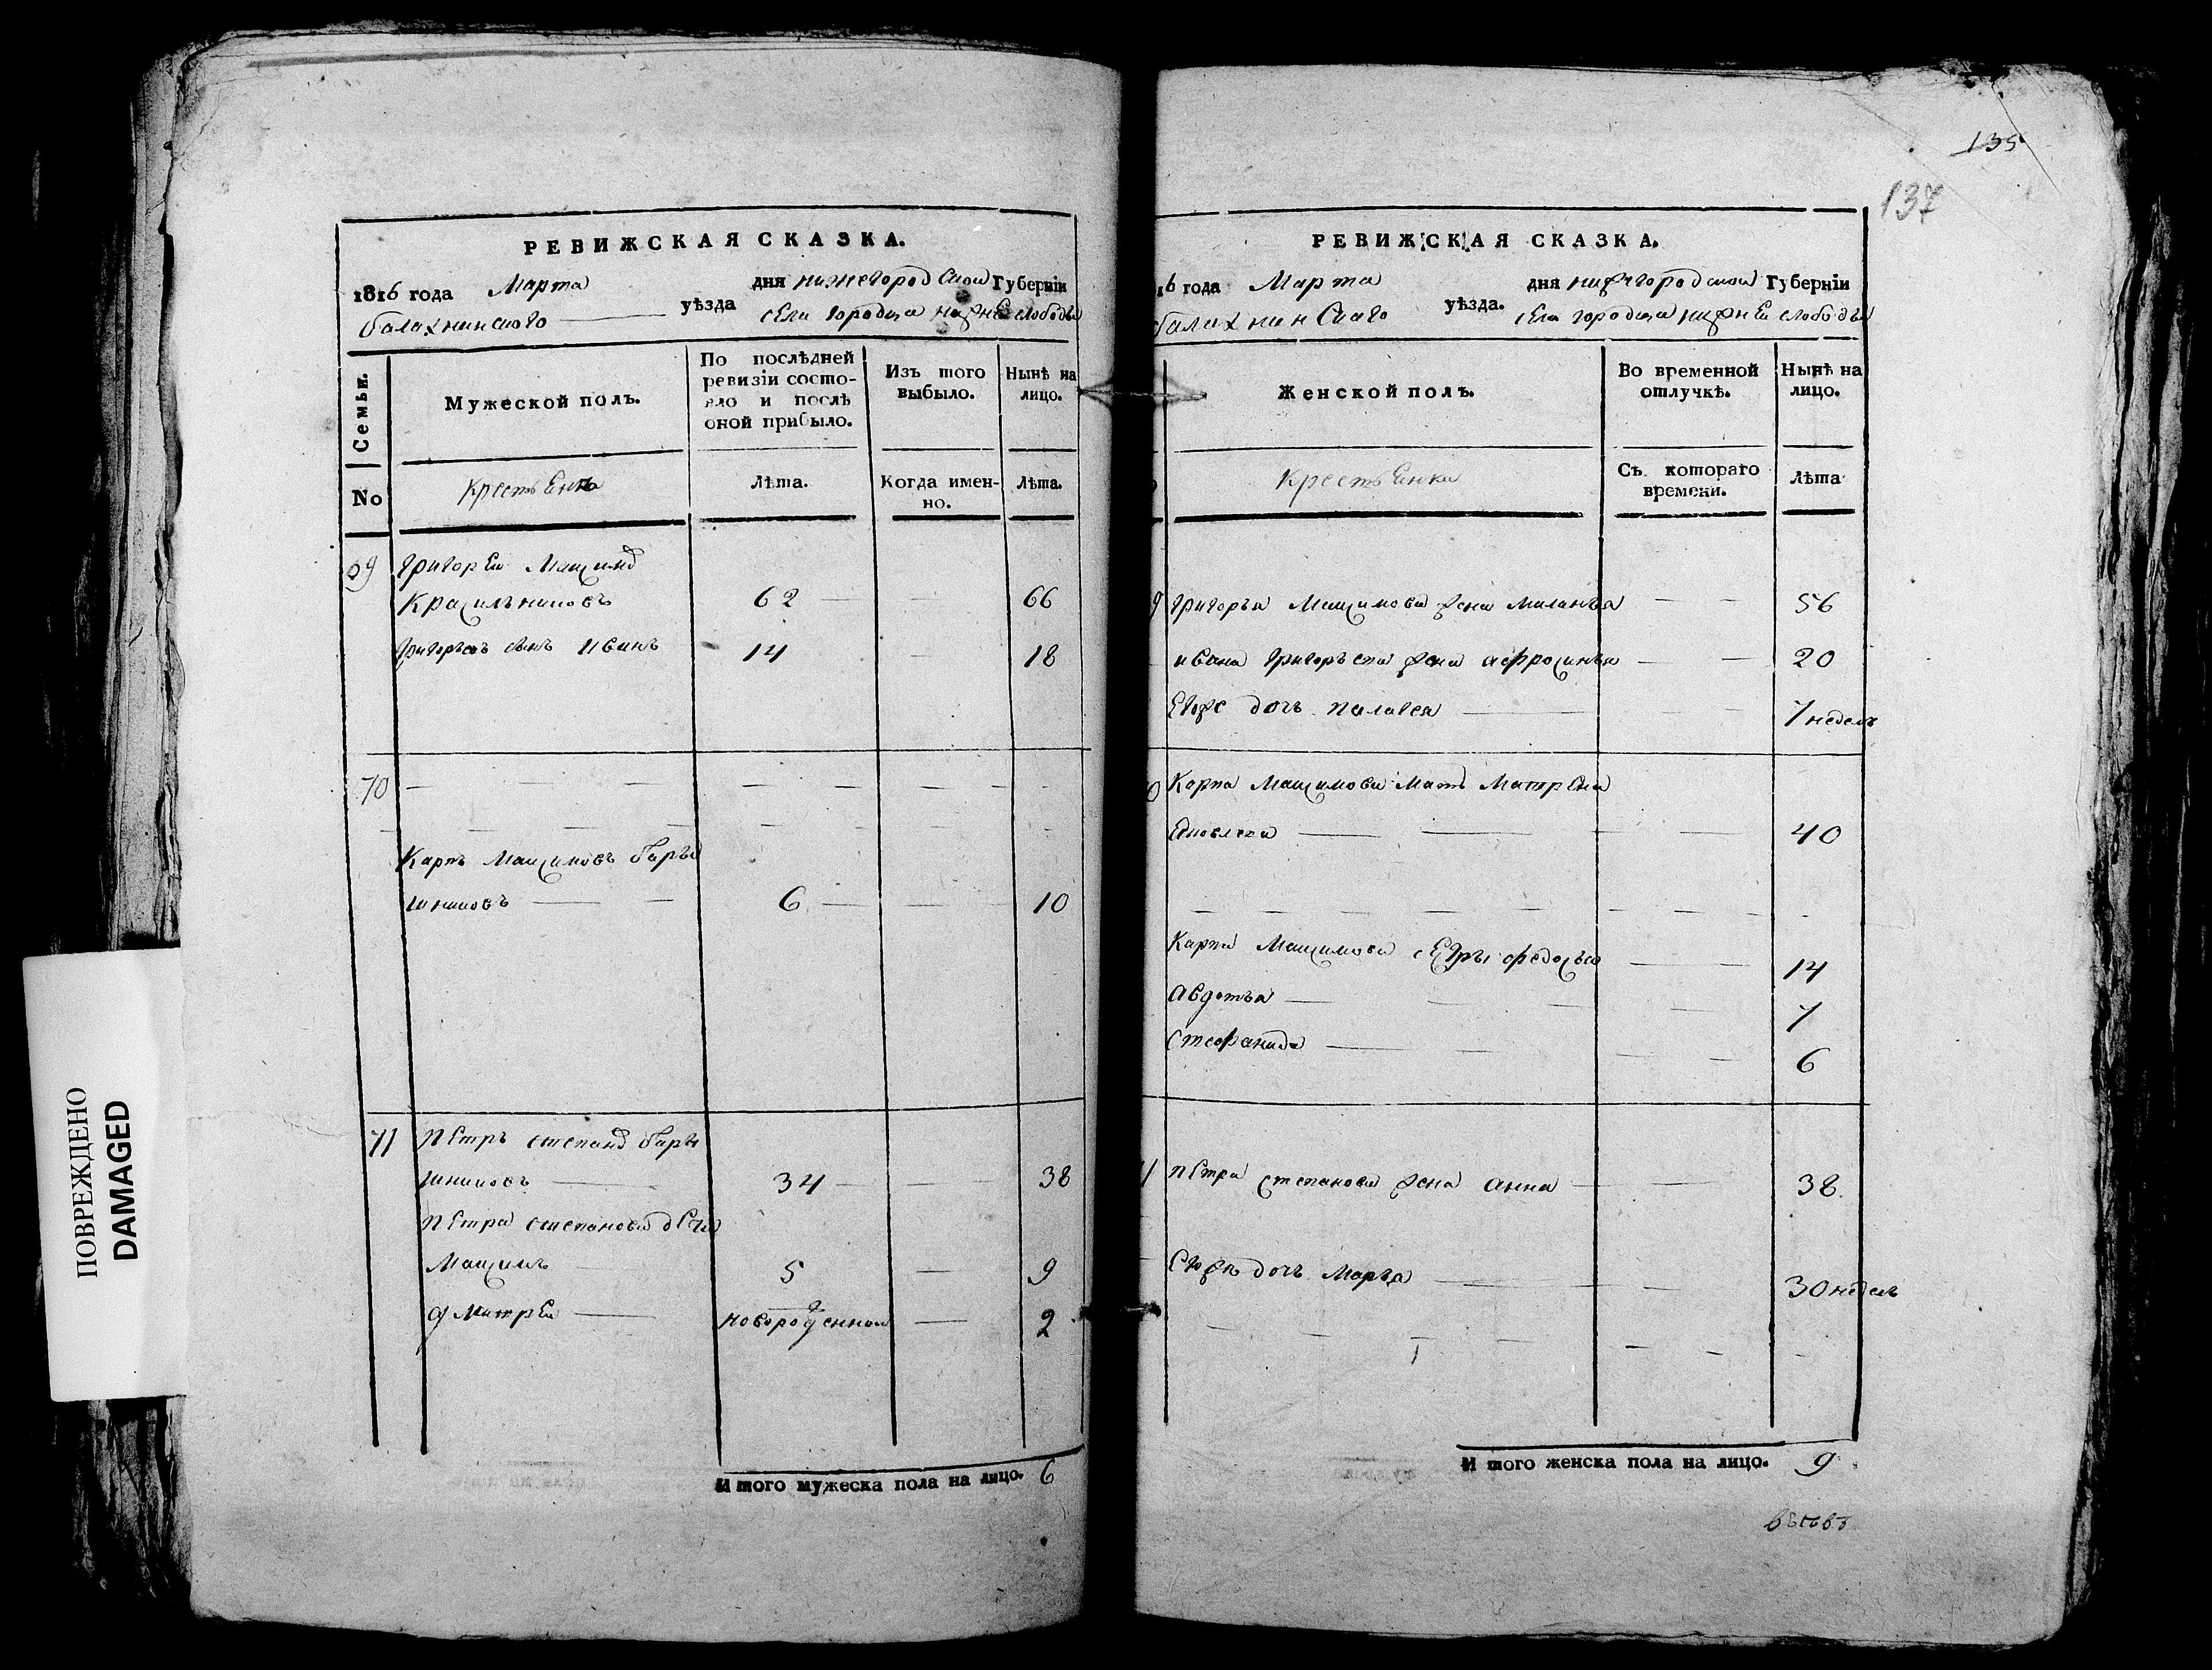 РЕВИЖСКАЯ СКАЗКА.
1816 года Марта дня нижегородской Губерніи
балахнинского уѣзда села городца нижней слободы
Семьи.
Мужеской полъ.
По послѣдней ревизіи состояло и послѣ оной прибыло.
Изъ того выбыло.
Нынѣ на лицо.
No
Лѣта.
Когда именно.
Лѣта.
69 Григорей Максимов
Красильников 62 66
Григорьев сынъ иванъ 14 18
70
Карпъ Максимовъ бары
шниковъ 6 10
71 петръ степанов бары
шниковъ 34 38
петра степанова дети
Максимъ 5 9
дмитрей новорожденной 2
Итого мужеска пола на лицо. 6
135
137
РЕВИЖСКАЯ СКАЗКА.
16 года Марта дня нижегородской Губерніи
балахнинскаго уѣзда. села городца нижней слободы
Женской полъ.
Во временной отлучкѣ.
Нынѣ на лицо.
Крестьянки
Съ котораго времени.
Лѣта
9 Григорья Максимова жена Маланья 56
ивана Григорьева жена афросинья 20
Его же дочь палагея 7 недель
0 Карпа Максимова Мать Матрена
40
Карпа Максимова сестры федосья 14
авдотья 7
стефанида 6
1 петра степанова жена анна 38
Его же дочь Марья 30 недель
Итого женска пола на лицо. 9